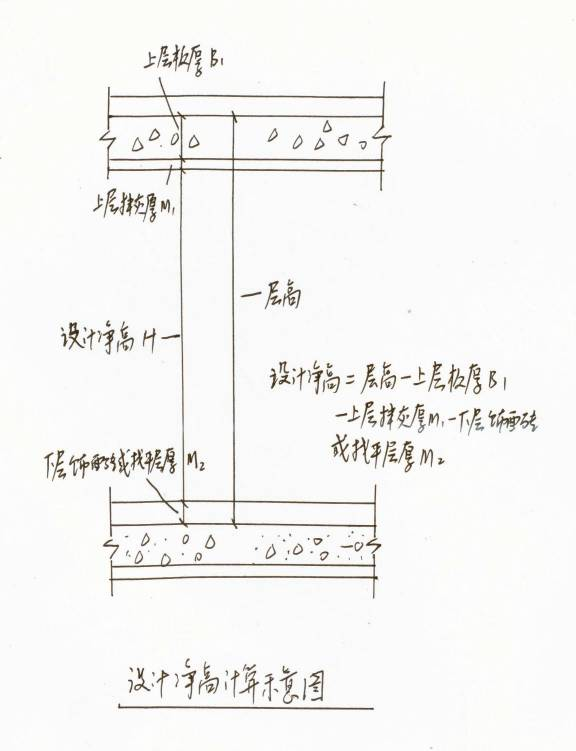 上层板厚B₁
上层抹灰厚M₁
层高
设计净高H
设计净高=层高-上层板厚B₁
-上层抹灰厚M₁-下层饰面砖
或找平层厚M₂
下层饰面砖或找平层厚M₂
设计净高计算示意图